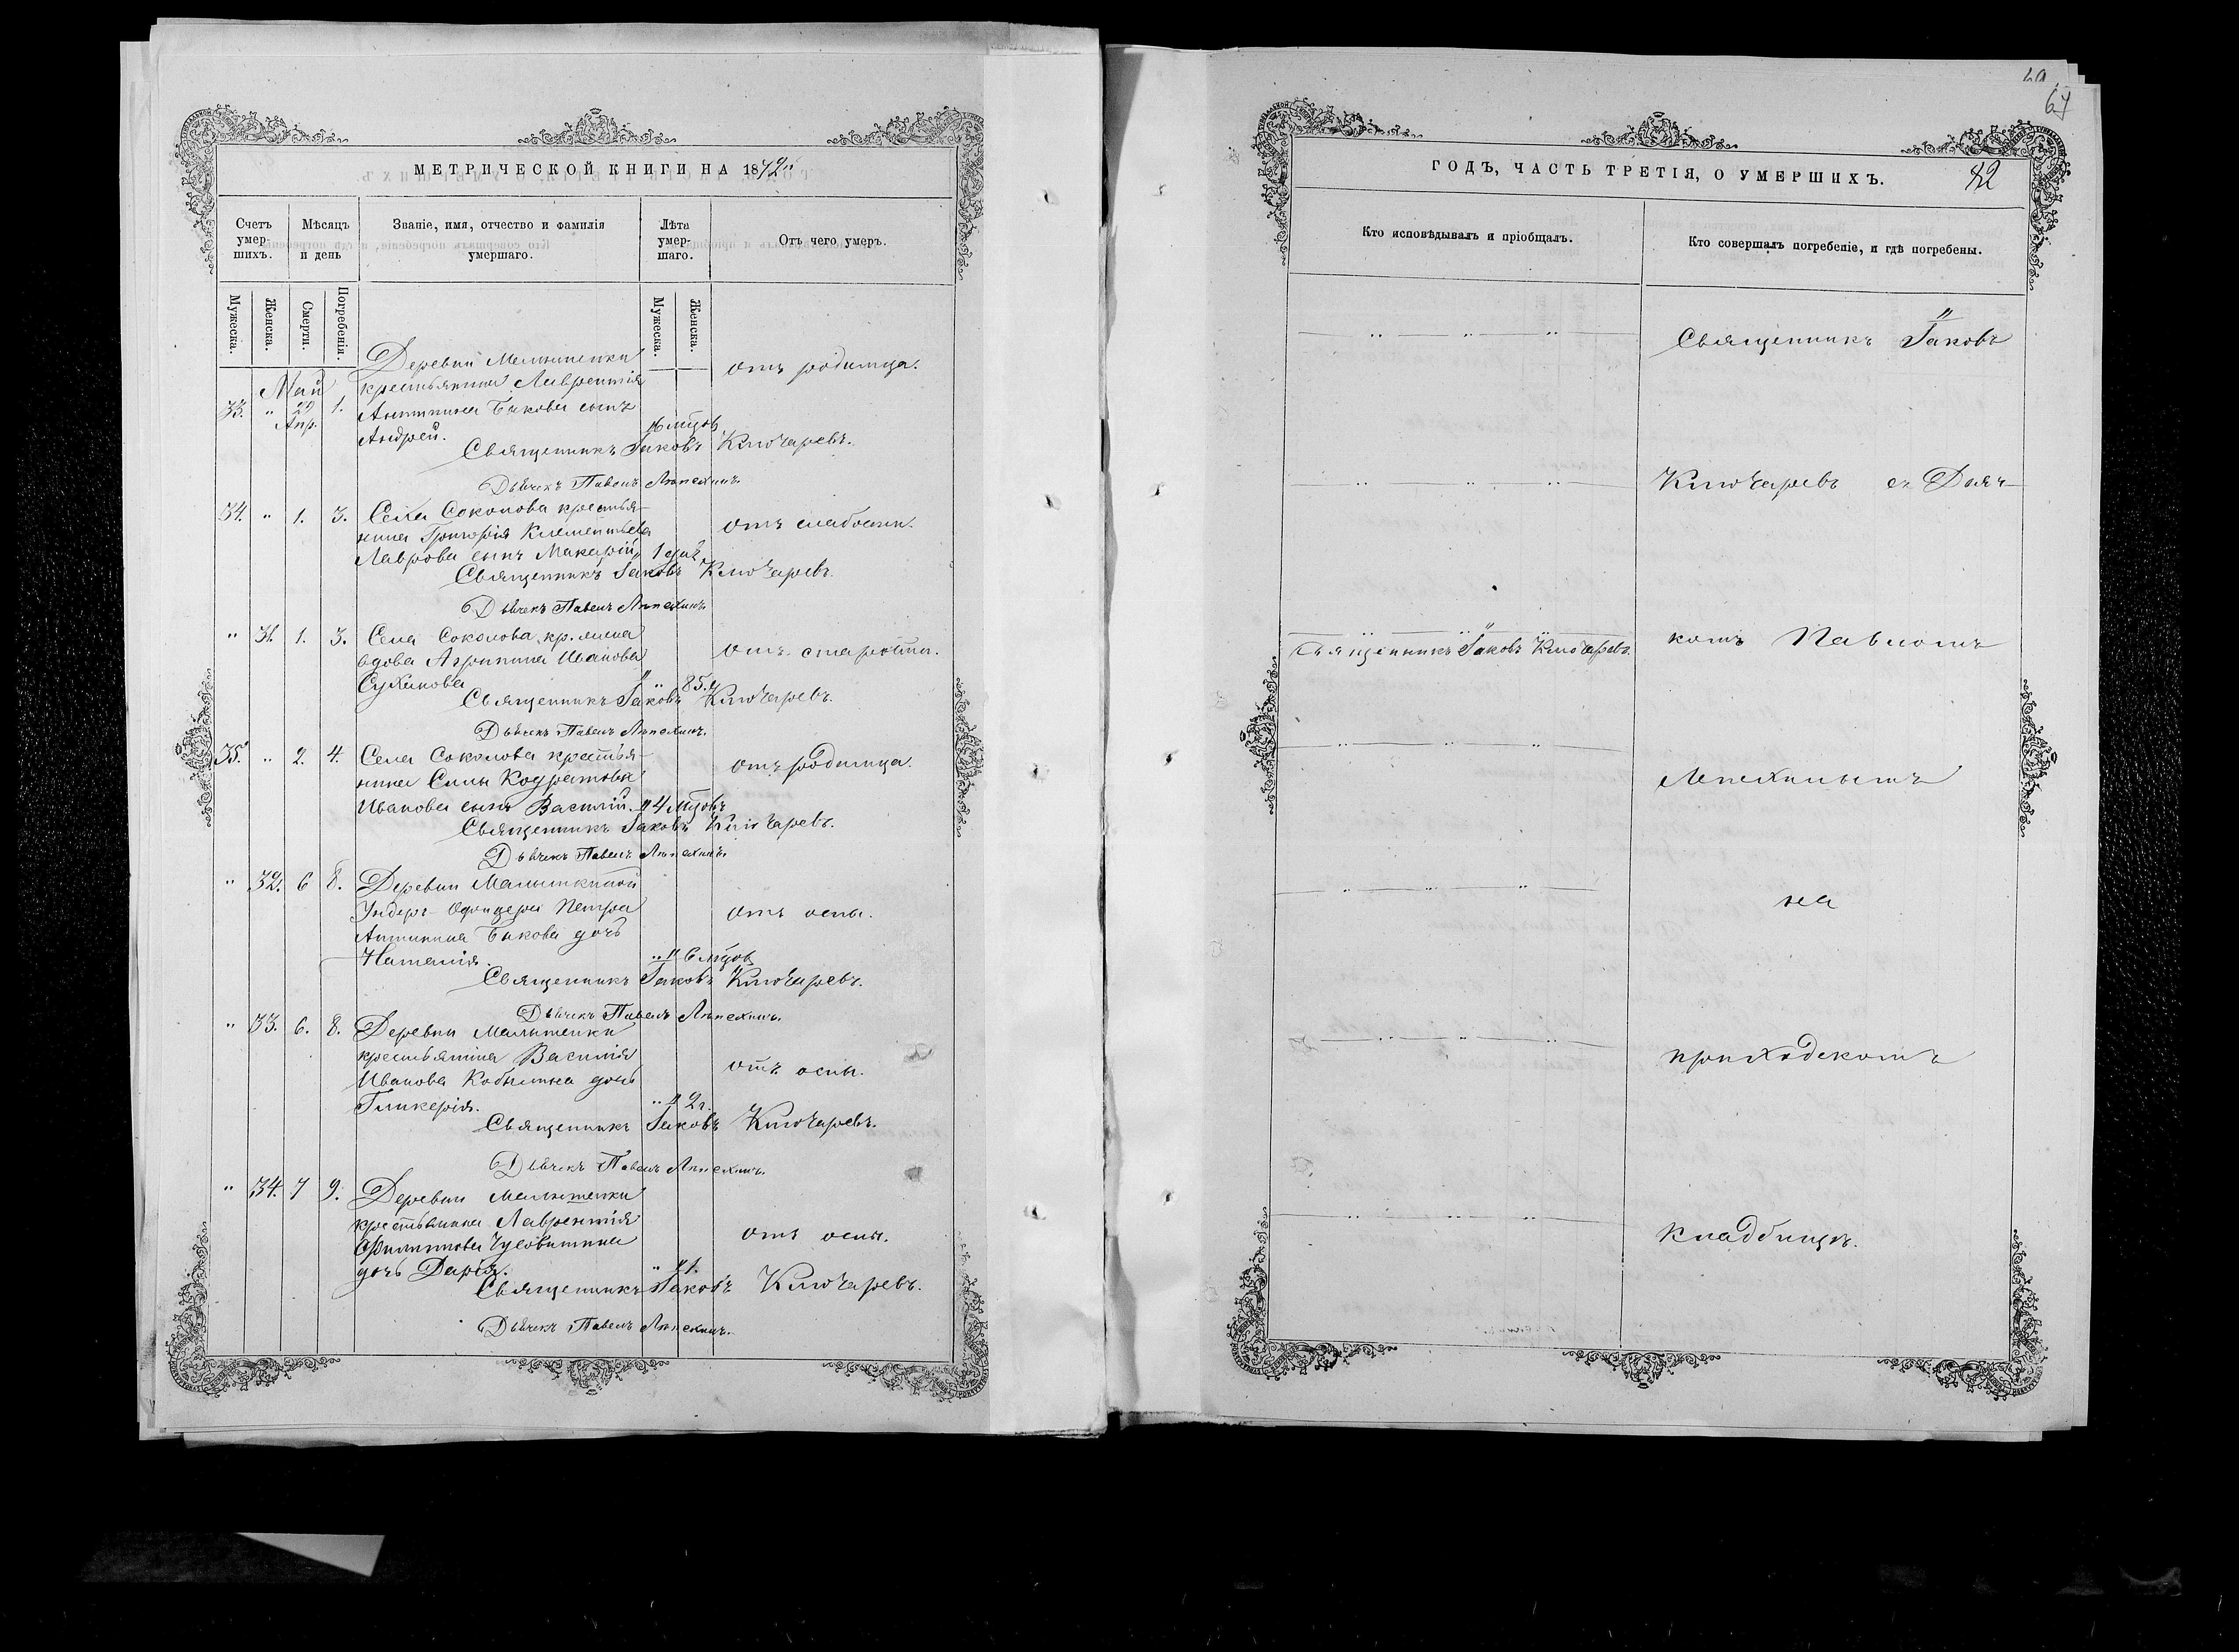 МЕТРИЧЕСКОЙ КНИГИ НА 1872
Счетъ умер- шихъ.
Мѣсяцъ и день
Званіе, имя, отчество и фамилія умершаго.
Лѣта умер- шаго.
Отъ чего умеръ.
Мужеска.
Женска.
Смерти.
Погребенія.
Мужеска.
Женска.
Май
Деревни
крестьянина Лаврентія
33. " 29 Апр. 1. Антипина Быкова сынъ
Андрей.
отъ родимца.
Священникъ Іаковъ Ключаревъ.
Дьячекъ Павелъ Лепехинъ.
34. " 1. 3. Села Соколова крестья-
нина Григорія Клементьева
Лаврова сынъ Макарій
отъ слабости.
Священникъ Іаковъ Ключаревъ.
Дьячекъ Павелъ Лепехинъ.
" 31. 1. 3. Села Соколова, кр.
вдова Агрипина Иванова
85.
отъ старости.
Священникъ Іаковъ Ключаревъ.
Дьячекъ Павелъ Лепехинъ.
35. " 2. 4. Села Соколова крестья-
нина Силы Кодратова
Иванова сынъ Василій. 4 мѣсцовъ
отъ родимца
Священникъ Іаковъ Ключаревъ.
Дьячекъ Павелъ Лепехинъ.
" 32. 6 8. Деревни
Ундеръ-Офицера Петра
Антипина Быкова дочь
Наталія. 6 мѣсцов
отъ оспы.
Священникъ Іаковъ Ключаревъ.
Дьячекъ Павелъ Лепехинъ.
" 33. 6. 8. Деревни
крестьянина Василія
Иванова Кобылина дочь
Гликерія. 2 г.
отъ оспы.
Священникъ Іаковъ Ключаревъ.
Дьячекъ Павелъ Лепехинъ.
" 34. 7 9. Деревни
крестьянина Лаврентія
Филиппова Чусовитина
дочь Дарія. 1.
отъ оспы.
Священникъ Іаковъ Ключаревъ.
Дьячекъ Павелъ Лепехинъ.
67
ГОДЪ, ЧАСТЬ ТРЕТІЯ, О УМЕРШИХЪ.
42
Кто исповѣдывалъ и пріобщалъ.
Кто совершалъ погребеніе, и гдѣ погребены.
Священникъ Іаковъ
Ключаревъ съ Дьяч-
Священникъ Іаковъ Ключаревъ.
комъ Павломъ
Лепехинымъ
на
приходскомъ
кладбищѣ.